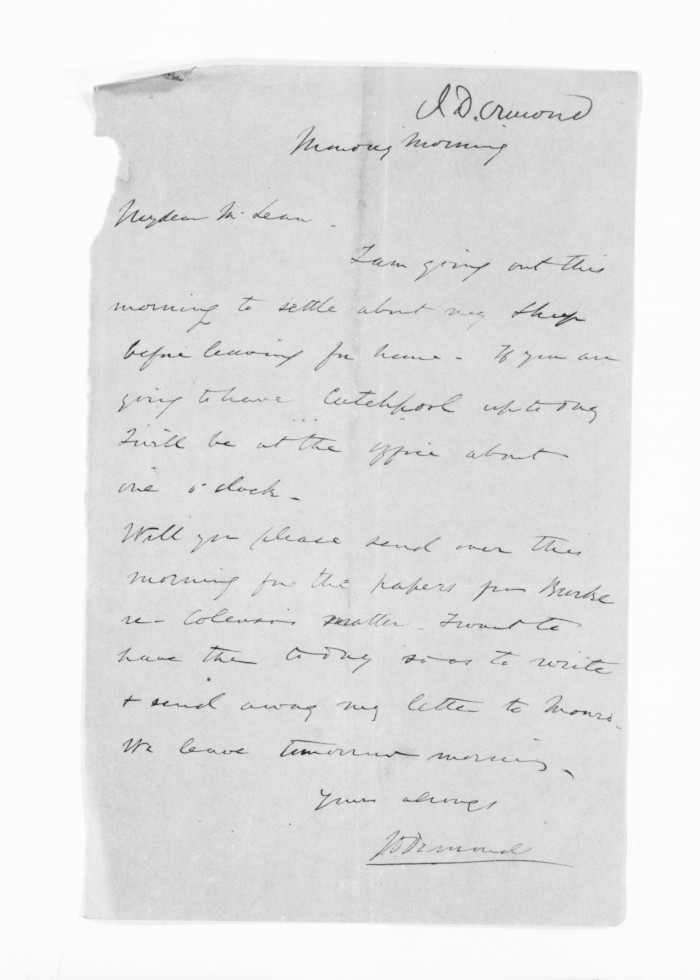 J. D. Ormond
Monday Morning
My dear McLean.
I am going out this
morning to settle about my sheep
before leaving for home - If you are
going to have Catchpool up today
I will be at the office about
one o'clock -
Will you please send over this
morning for the papers from Burke
re - Colenso's matter - I want to
have them today so as to write
& send away my letter to Monro -
We leave tomorrow morning -
Yours always
J D Ormond